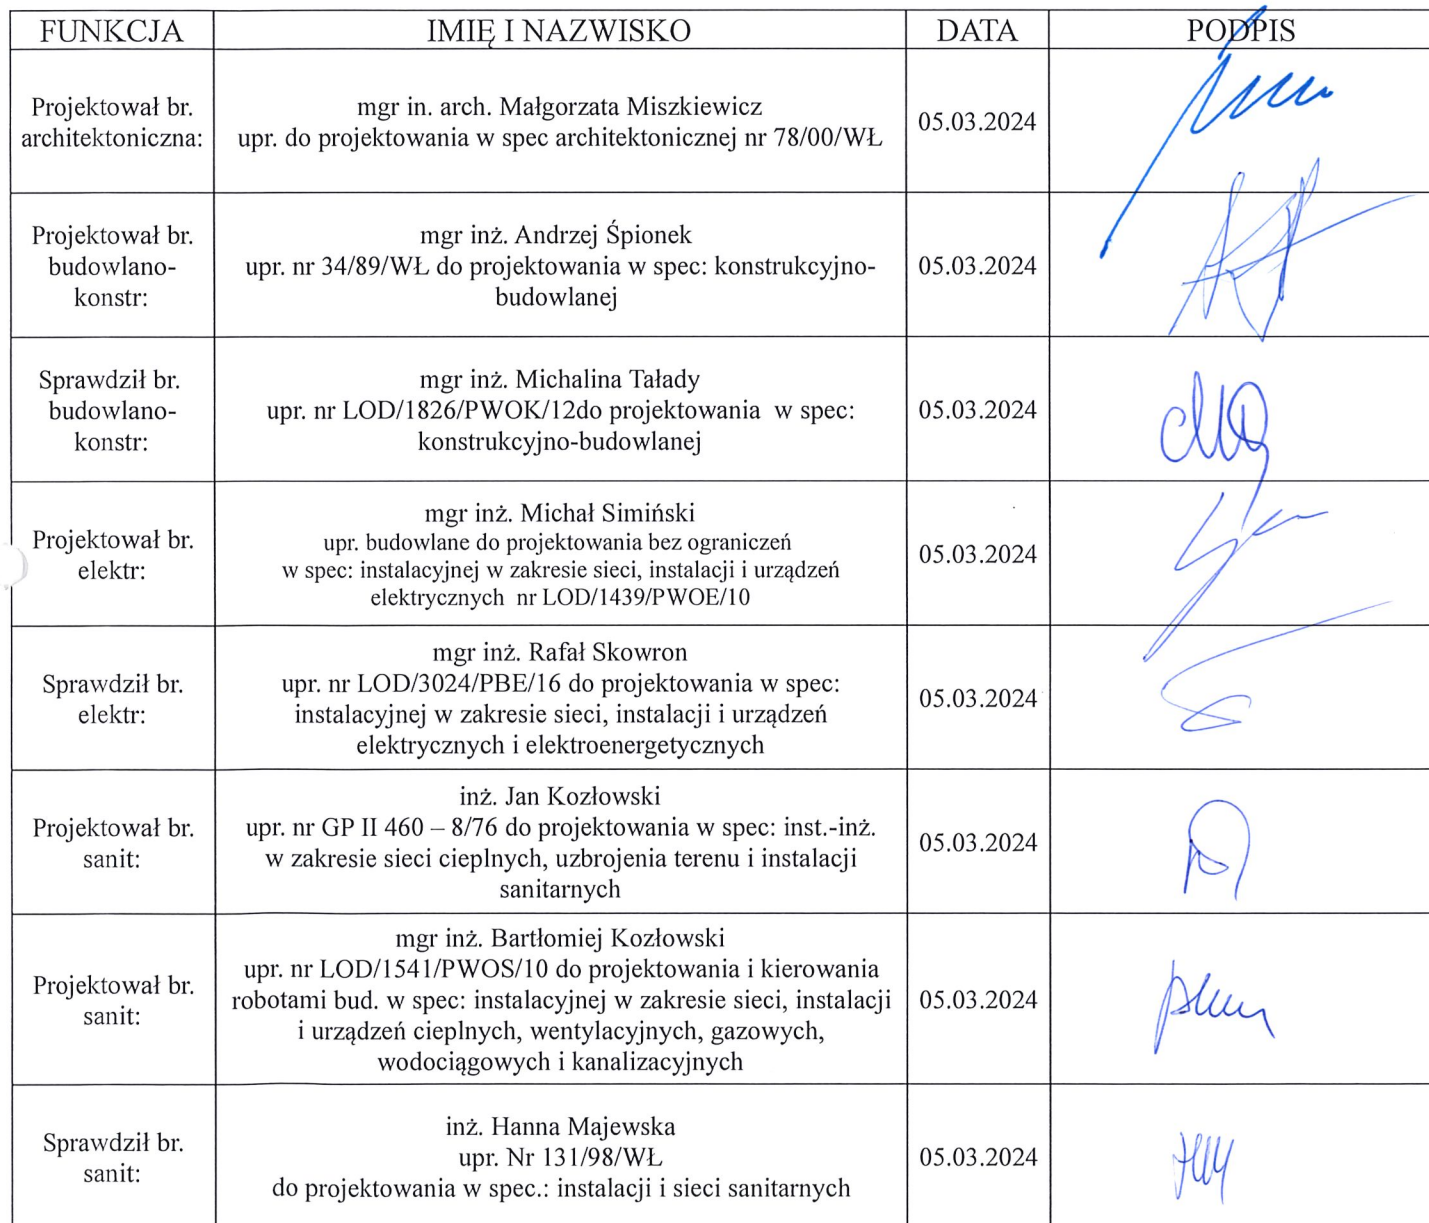 FUNKCJA IMIĘ I NAZWISKO DATA PODPIS
Projektował br.
architektoniczna:
mgr in. arch. Małgorzata Miszkiewicz
upr. do projektowania w spec architektonicznej nr 78/00/WŁ
05.03.2024
Projektował br.
budowlano-
konstr:
mgr inż. Andrzej Śpionek
upr. nr 34/89/WŁ do projektowania w spec: konstrukcyjno-
budowlanej
05.03.2024
Sprawdził br.
budowlano-
konstr:
mgr inż. Michalina Tałady
upr. nr LOD/1826/PWOK/12do projektowania w spec:
konstrukcyjno-budowlanej
05.03.2024
Projektował br.
elektr:
mgr inż. Michał Simiński
upr. budowlane do projektowania bez ograniczeń
w spec: instalacyjnej w zakresie sieci, instalacji i urządzeń
elektrycznych nr LOD/1439/PWOE/10
05.03.2024
Sprawdził br.
elektr:
mgr inż. Rafał Skowron
upr. nr LOD/3024/PBE/16 do projektowania w spec:
instalacyjnej w zakresie sieci, instalacji i urządzeń
elektrycznych i elektroenergetycznych
05.03.2024
Projektował br.
sanit:
inż. Jan Kozłowski
upr. nr GP II 460 – 8/76 do projektowania w spec: inst.-inż.
w zakresie sieci cieplnych, uzbrojenia terenu i instalacji
sanitarnych
05.03.2024
Projektował br.
sanit:
mgr inż. Bartłomiej Kozłowski
upr. nr LOD/1541/PWOS/10 do projektowania i kierowania
robotami bud. w spec: instalacyjnej w zakresie sieci, instalacji
i urządzeń cieplnych, wentylacyjnych, gazowych,
wodociągowych i kanalizacyjnych
05.03.2024
Sprawdził br.
sanit:
inż. Hanna Majewska
upr. Nr 131/98/WŁ
do projektowania w spec.: instalacji i sieci sanitarnych
05.03.2024